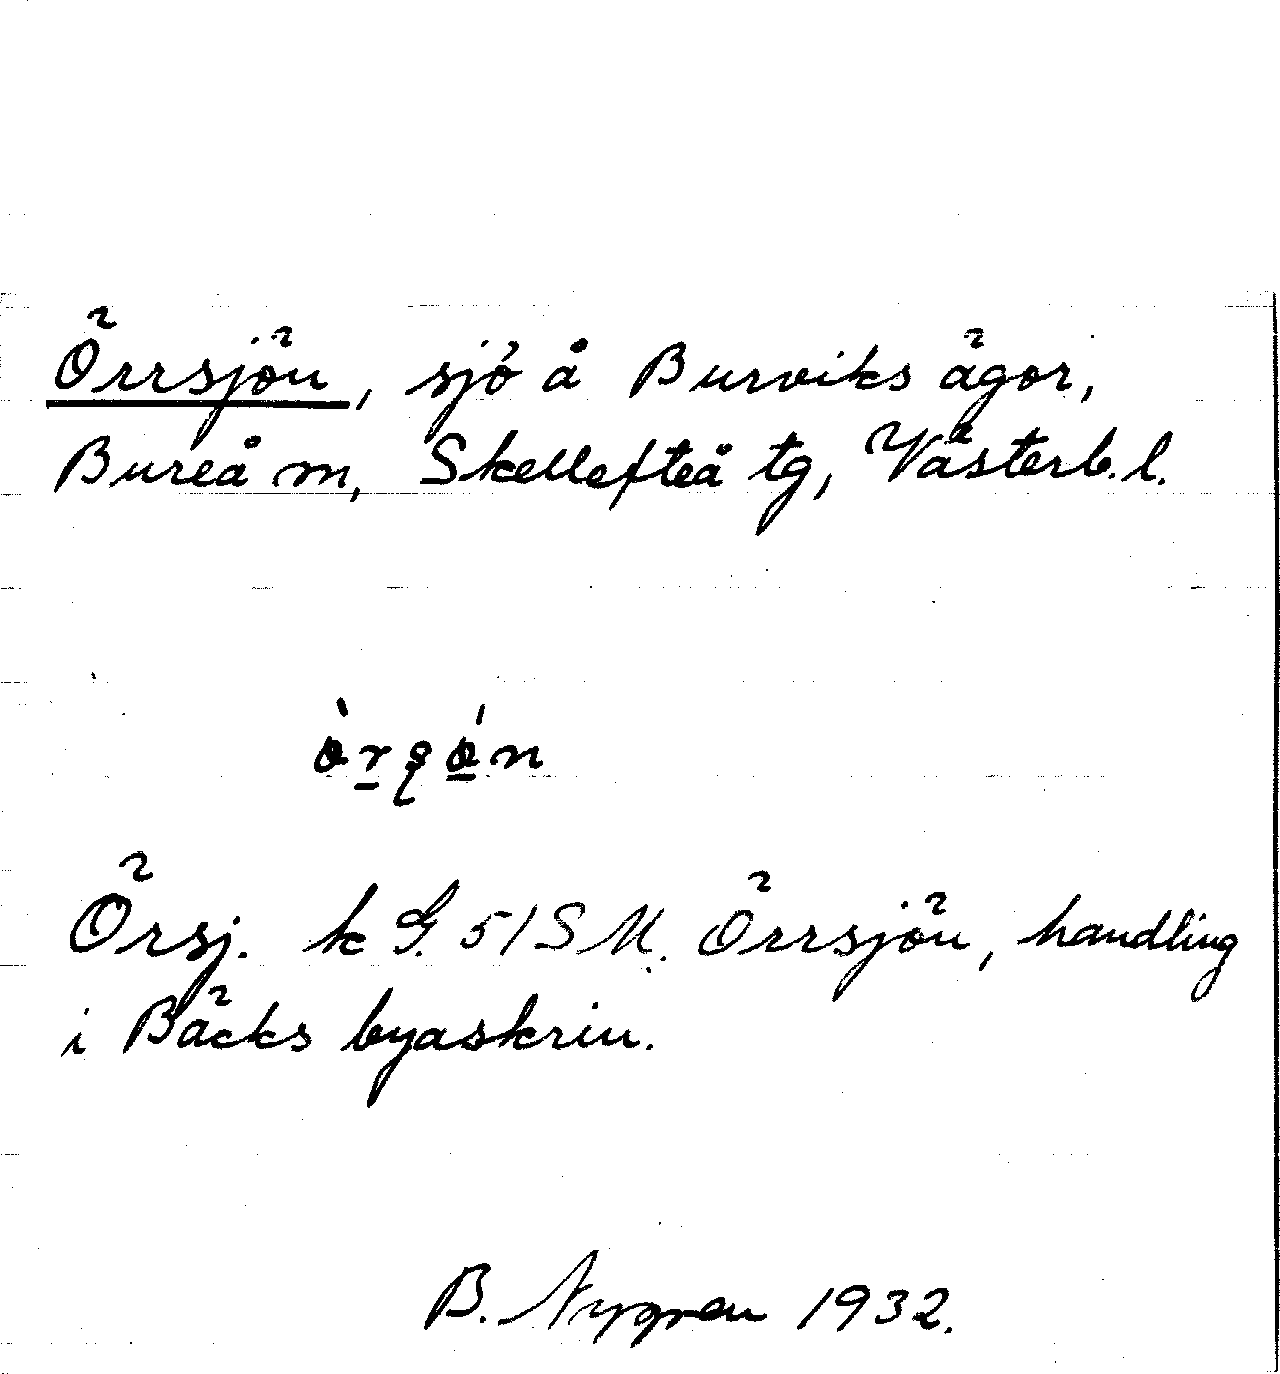 Örrsjön, sjö å Burviks ägor,
Bureå m, Skellefteå tg, Västerb. l.
Örsj. k G. 51 S M. Örrsjön, handling
i Bäcks byaskrin.
B. Nygren 1932.